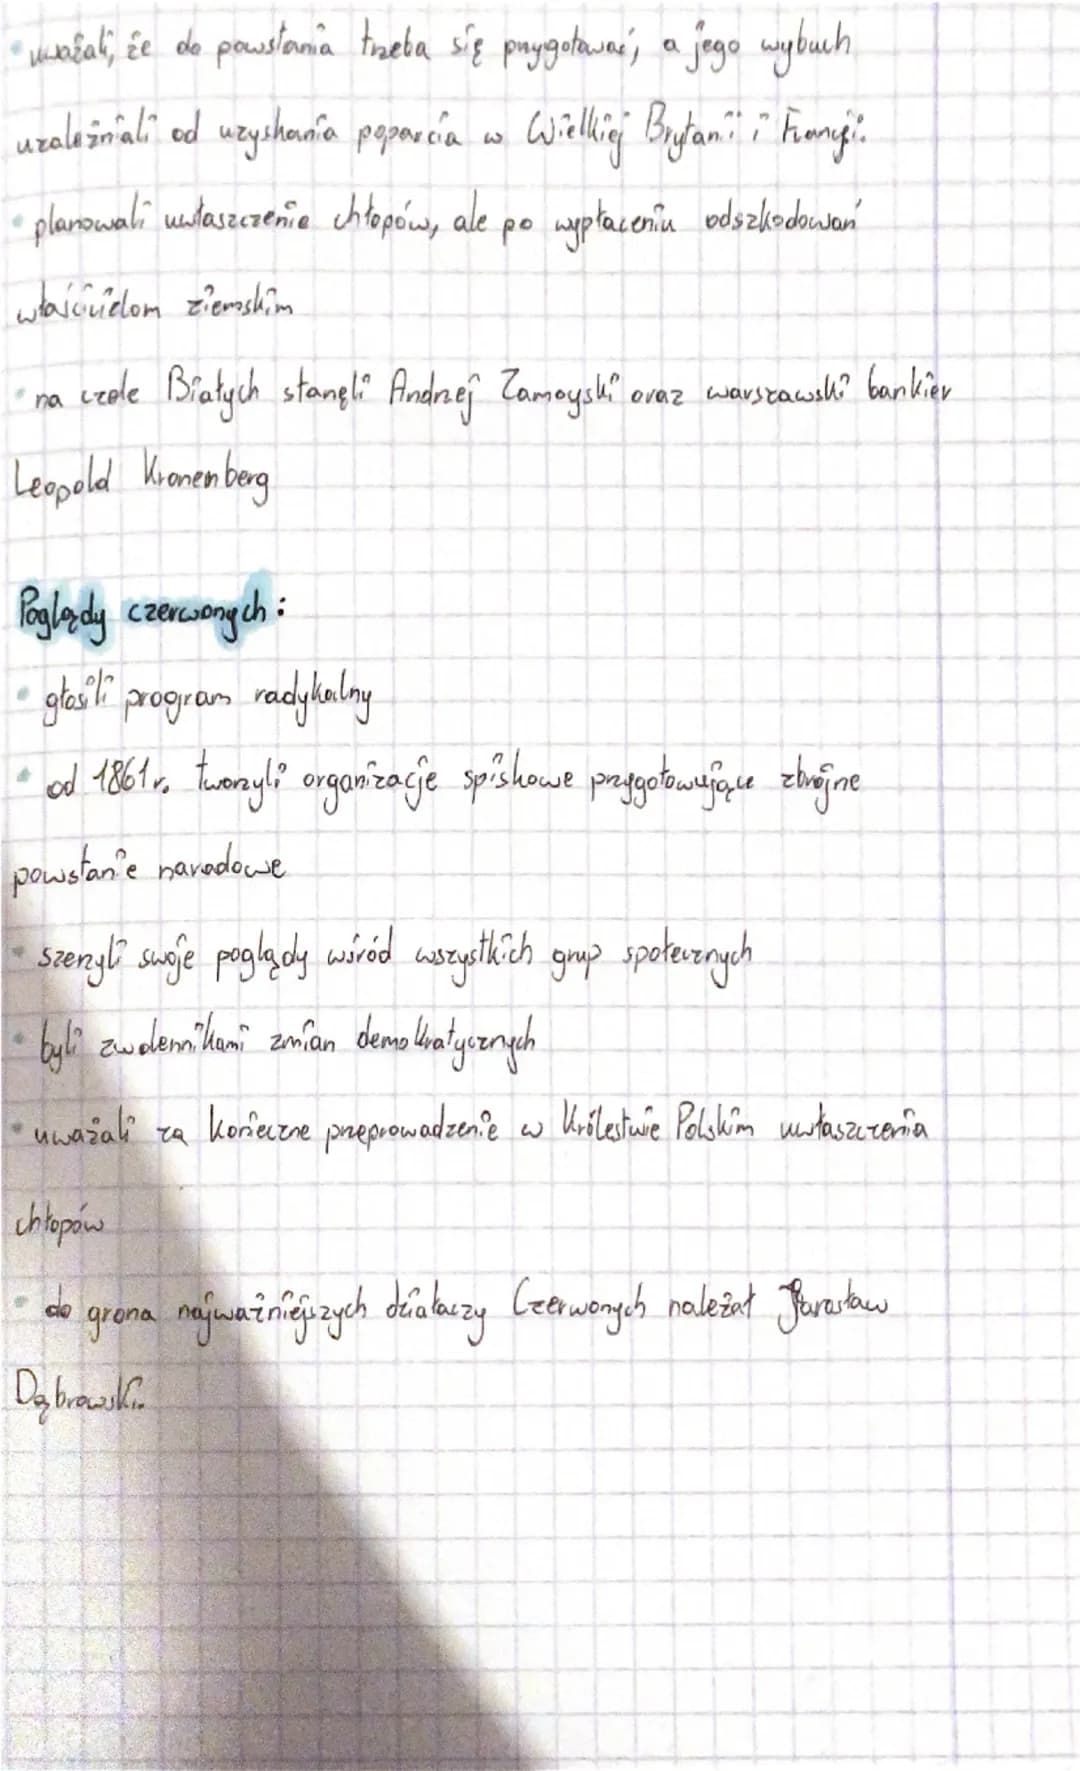 • uważali, że do powstania trzeba się przygotować, a jego wybuch
uzależniali od uzyskania poparcia w Wielkiej Brytanii i Francji.
• planowali uwłaszczenie chłopów, ale po wypłaceniu odszkodowań
właścicielom ziemskim
• na czele Białych stanęli Andrzej Zamoyski oraz warszawski bankier
Leopold Kronenberg
Poglądy czerwonych:
• głosili program radykalny
• od 1861 r. tworzyli organizacje spiskowe przygotowujące zbrojne
powstanie narodowe
• szerzyli swoje poglądy wśród wszystkich grup społecznych
• byli zwolennikami zmian demokratycznych
• uważali za konieczne przeprowadzenie w Królestwie Polskim uwłaszczenia
chłopów
• do grona najważniejszych działaczy Czerwonych należał Jarosław
Dąbrowski.